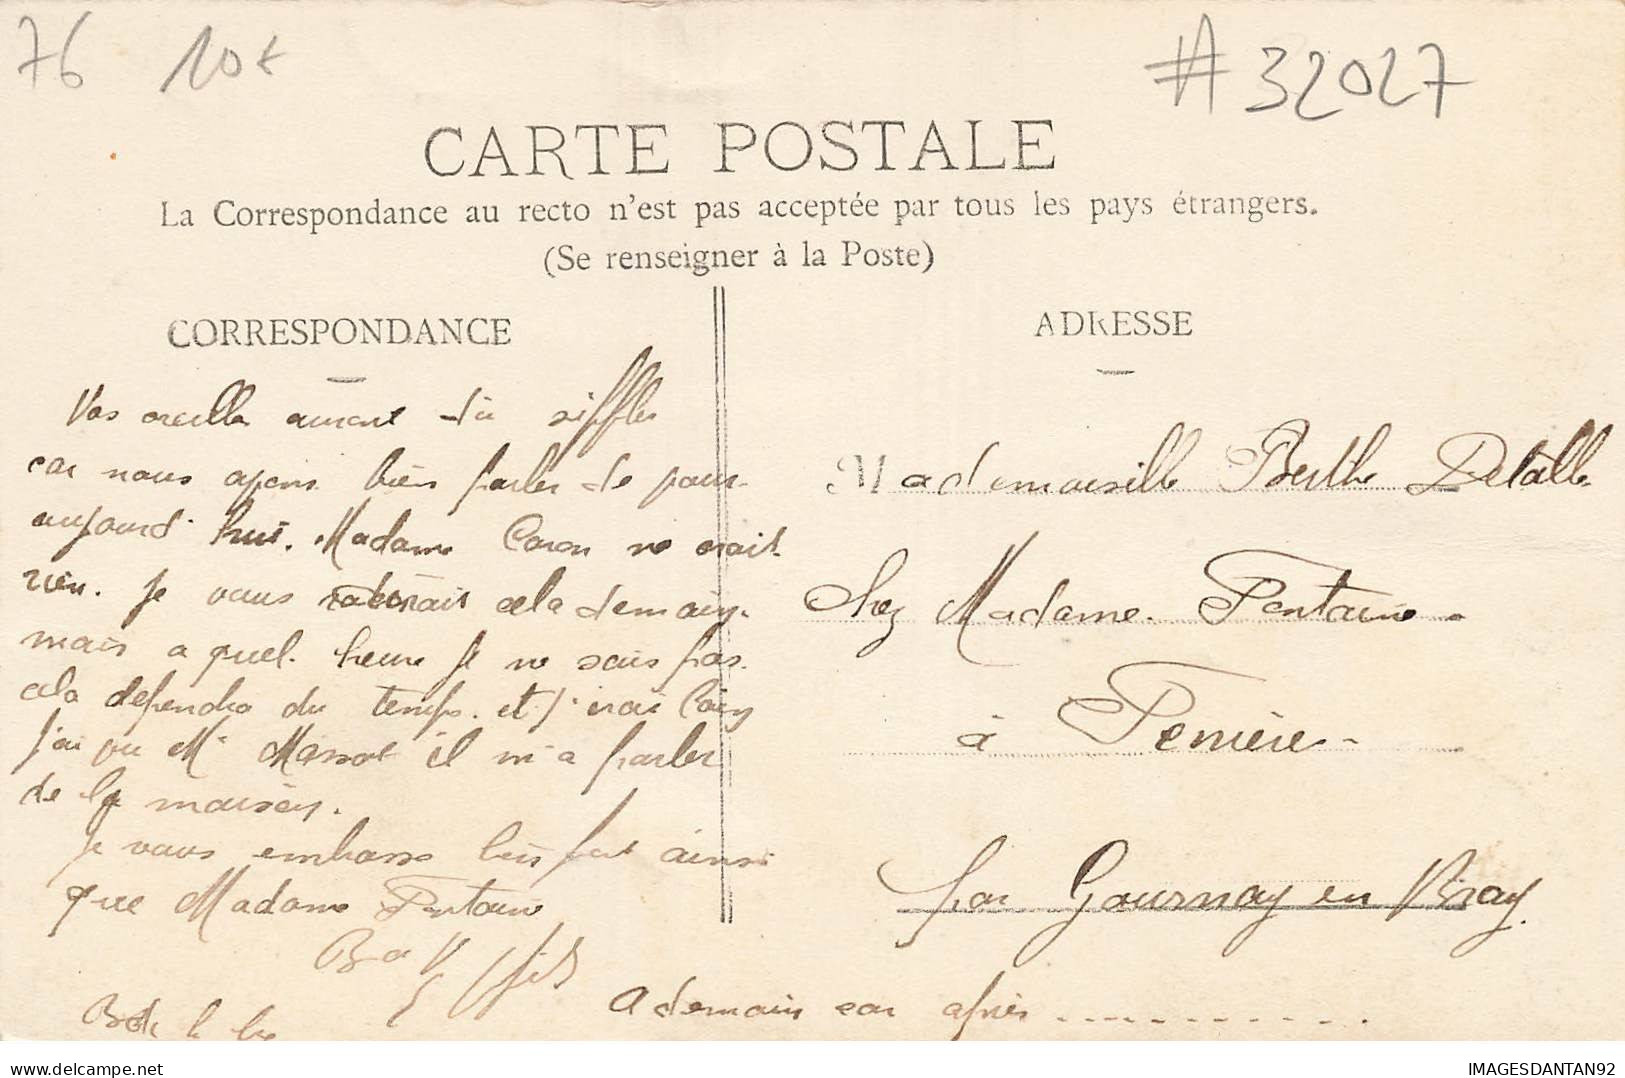 76 10€ #32027
CARTE POSTALE
La Correspondance au recto n'est pas acceptée par tous les pays étrangers.
(Se renseigner à la Poste)
CORRESPONDANCE
Vos oreilles auront dû siffler
car nous avons bien parler de vous
aujourd'hui. Madame Caron ne
rien. Je vous cela demain.
mais a quel heure je ne sais pas.
cela dependra du temps. et j'irai
j'ai vu Mr il m'a parler
de la maison.
Je vous embrasse bien fort ainsi
que Madame Fontaine
ADRESSE
Mademoiselle Berthe Delalle
Chez Madame Fontaine
à Ferrière
par Gournay en Bray
A demain car après ............
IMAGESDANTAN92